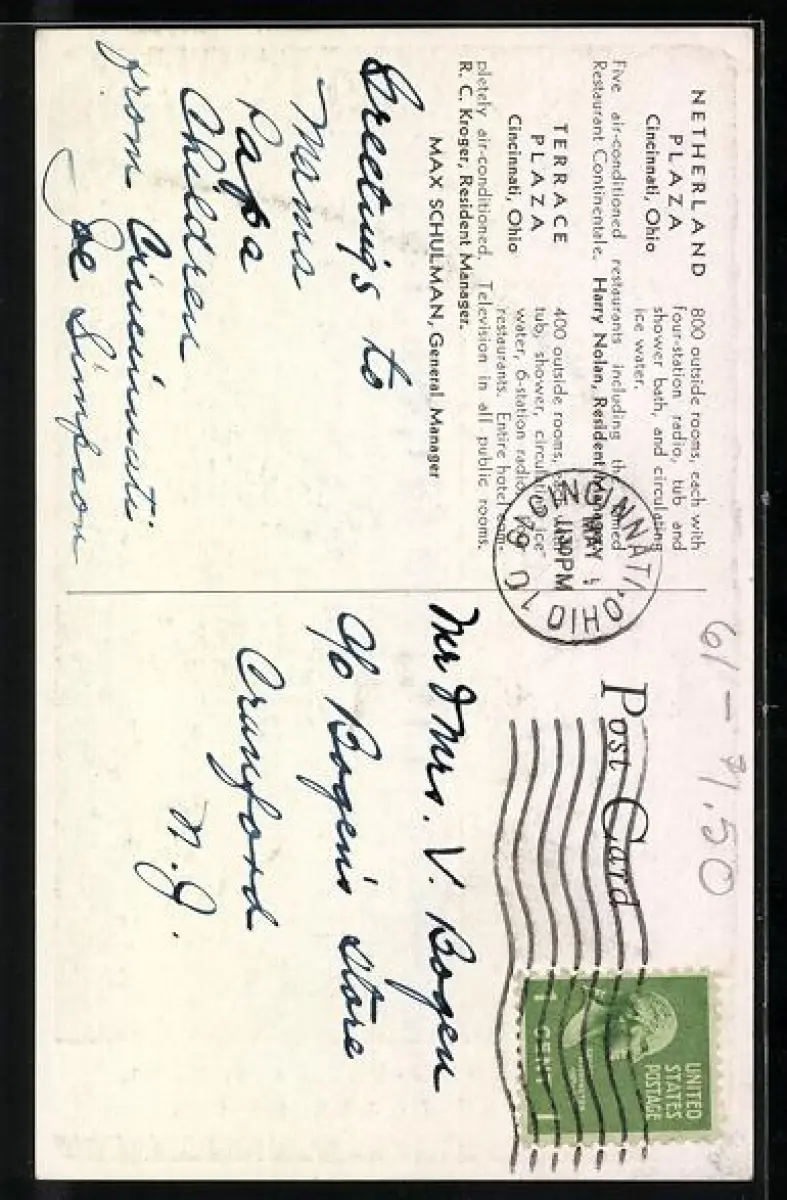 NETHERLAND
PLAZA
Cincinnati, Ohio
800 outside rooms, each with
four-station radio, tub and
shower bath, and circulating
ice water.
Five air-conditioned restaurants including the
Restaurant Continentale. Harry Nolan, Resident
TERRACE
PLAZA
Cincinnati, Ohio
400 outside rooms,
tub, shower, ice
water, 6-station radio,
restaurants. Entire hotel com-
pletely air-conditioned. Television in all public rooms.
R. C. Kroger, Resident Manager.
MAX SCHULMAN, General Manager
Greetings to
Mama
Papa
Children
from Cincinnati
Joe Simpson
CINCINNATI, OHIO
MAY
11 30 PM
61 - $1.50
Post Card
UNITED
STATES
POSTAGE
1 CENT 1
Mr & Mrs. V. Bogen
c/o Bogen's Store
Cranford
N.J.